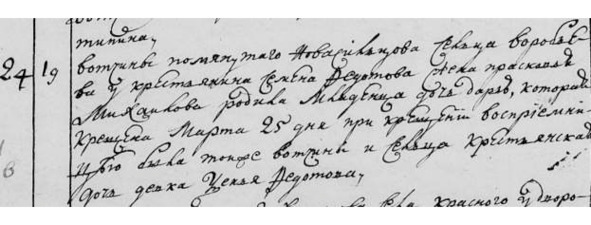 типина,
24 19 вотчины помянутаго Новасильцова сельца воробье-
ва у крестьянина Семена Федотова жена прасковья
Михайлова родила младенца дочь дарью, которая
крещена Марта 25 дня при крещении восприемни-
цею была тоеже вотчины и сельца крестьянская
дочь девка Федотова,
красного